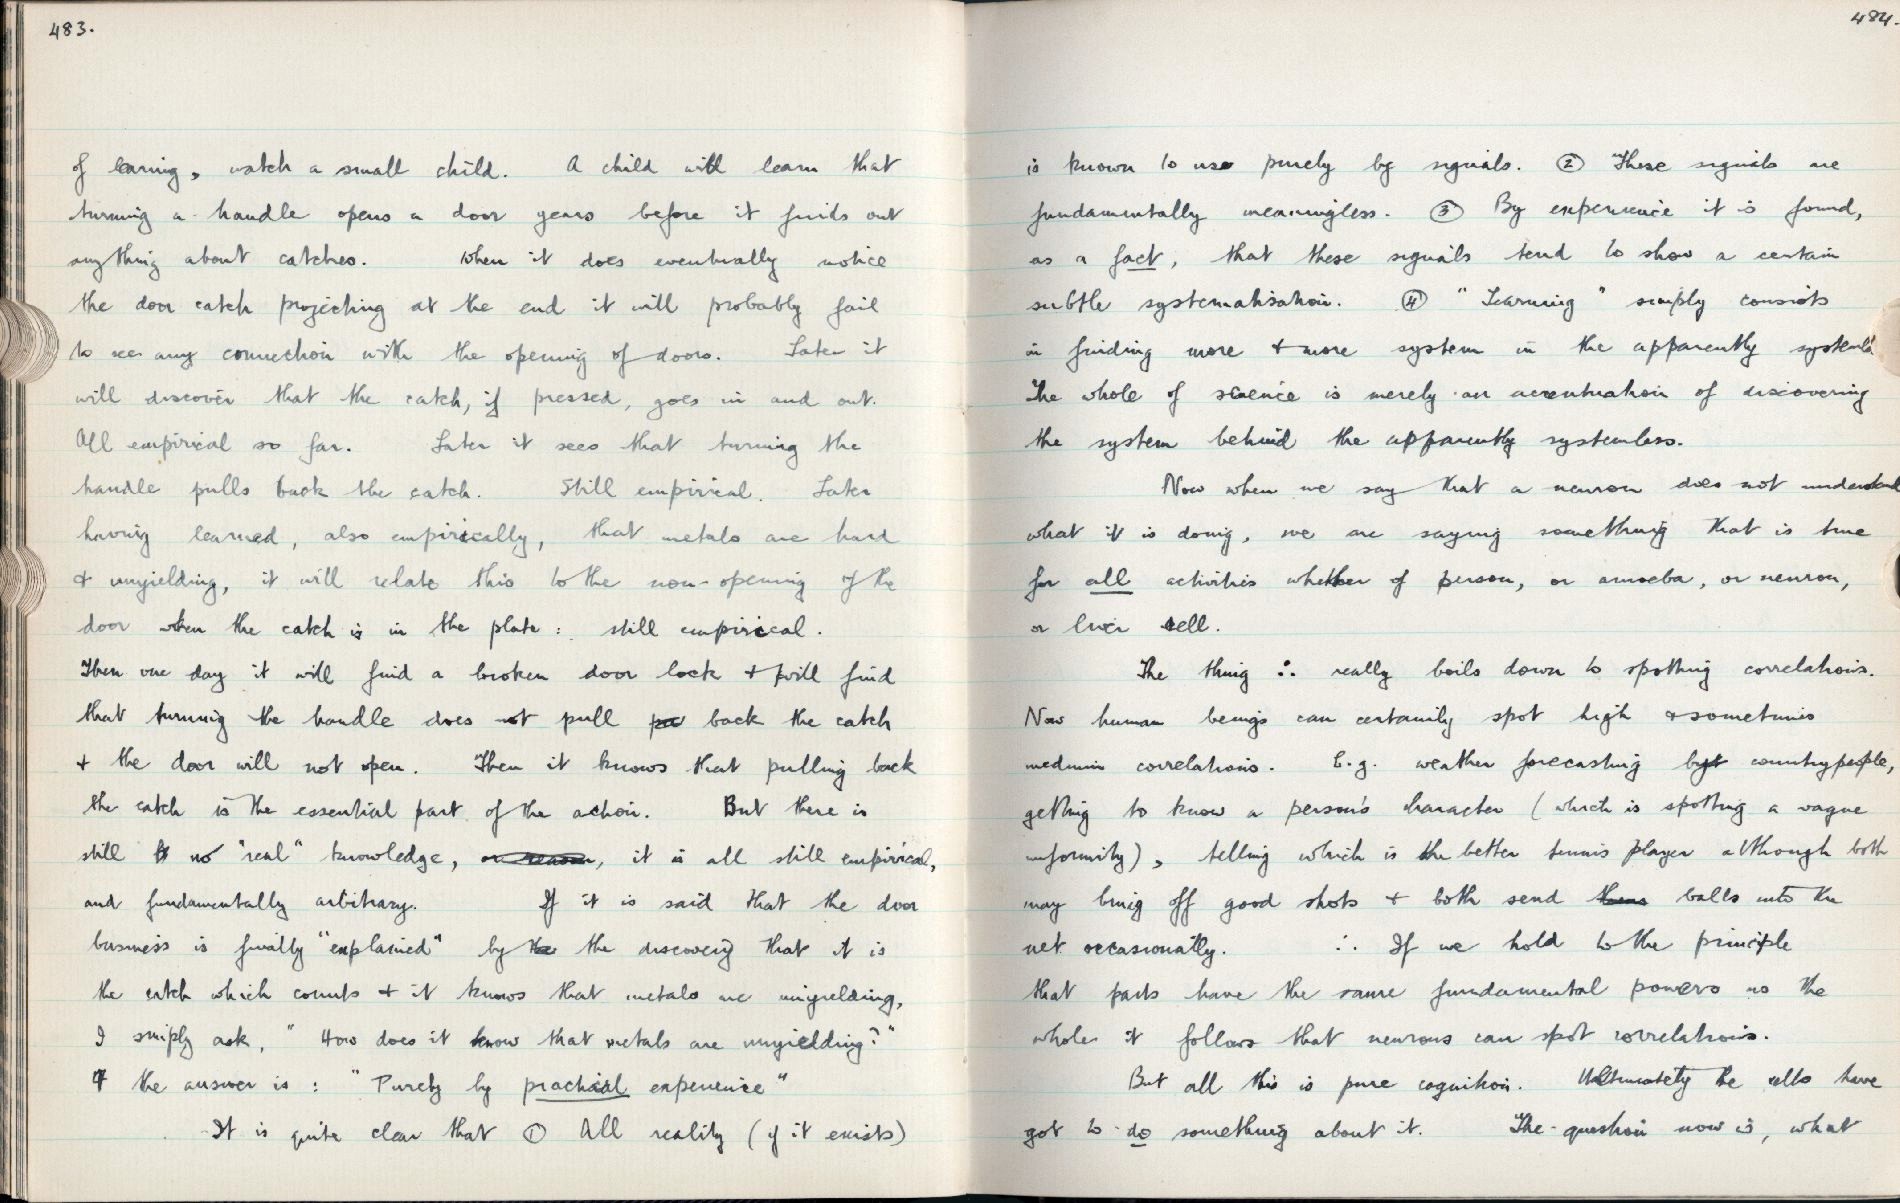 483.
of learning, watch a small child. A child will learn that
turning a handle opens a door years before it finds out
anything about catches. When it does eventually notice
the door catch projecting at the end it will probably fail
to see any connection with the opening of doors. Later it
will discover that the catch, if pressed, goes in and out.
All empirical so far. Later it sees that turning the
handle pulls back the catch. Still empirical. Later
having learned, also empirically, that metals are hard
& unyielding, it will relate this to the non-opening of the
door when the catch is in the plate: still empirical.
Then one day it will find a broken door lock & will find
that turning the handle does not pull back the catch
& the door will not open. Then it knows that pulling back
the catch is the essential part of the action. But there is
still no "real" knowledge, or reason, it is all still empirical,
and fundamentally arbitrary. If it is said that the door
business is finally "explained" by the the discovery that it is
the catch which counts & it knows that metals are unyielding,
I simply ask, "How does it know that metals are unyielding?"
& the answer is: "Purely by practical experience"
It is quite clear that ① All reality (if it exists)
484.
is known to us purely by signals. ② These signals are
fundamentally meaningless. ③ By experience it is found,
as a fact, that these signals tend to show a certain
subtle systematisation. ④ "Learning" simply consists
in finding more & more system in the apparently
The whole of science is merely an accentuation of discovering
the system behind the apparently systemless.
Now when we say that a neuron does not understand
what it is doing, we are saying something that is true
for all activities whether of person, or amoeba, or neuron,
or liver cell.
The thing ∴ really boils down to spotting correlations.
Now human beings can certainly spot high & sometimes
medium correlations. E.g. weather forecasting by countrypeople,
getting to know a person's character (which is spotting a vague
uniformity), telling which is the better tennis player although both
may bring off good shots & both send them balls into the
net occasionally. ∴ If we hold to the principle
that parts have the same fundamental powers as the
whole it follows that neurons can spot correlations.
But all this is pure cognition. Ultimately the cells have
got to do something about it. The question now is, what